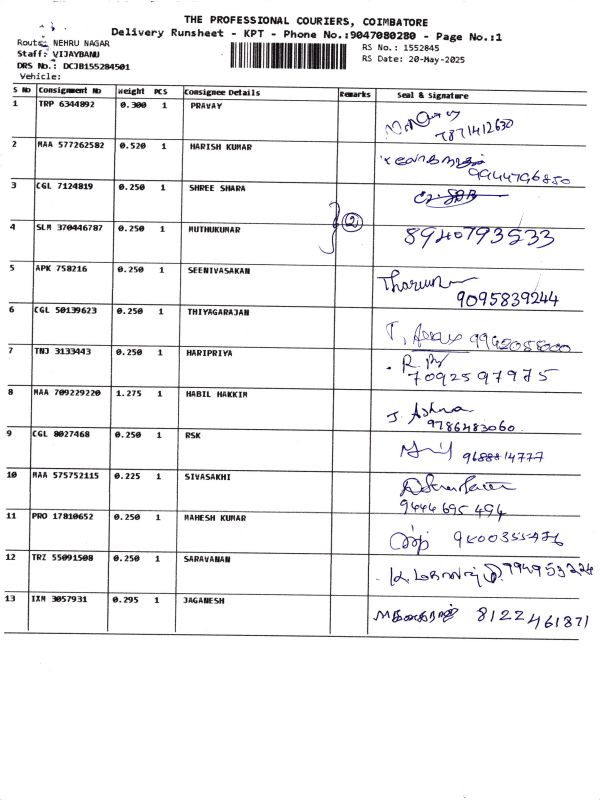 THE PROFESSIONAL COURIERS, COIMBATORE
Delivery Runsheet - KPT - Phone No.:9047080280 - Page No.:1
Route: NEHRU NAGAR
RS No.: 1552845
Staff: VIJAYBANU
RS Date: 20-May-2025
DRS No.: DCJB155284501
Vehicle:
S No Consignment No Weight PCS Consignee Details Remarks Seal & Signature
1 TRP 6344892 0.300 1 PRAVAY
7871412630
2 MAA 577262582 0.520 1 HARISH KUMAR
9944796850
3 CGL 7124819 0.250 1 SHREE SHARA
2
4 SLM 370446787 0.250 1 MUTHUKUMAR 8940793533
5 APK 758216 0.250 1 SEENIVASAKAN Tharun
9095839244
6 CGL 50139623 0.250 1 THIYAGARAJAN T.
7 TNJ 3133443 0.250 1 HARIPRIYA R.
7092597975
8 MAA 709229220 1.275 1 HABIL HAKKIM J. Ashra
9786483060
9 CGL 8027468 0.250 1 RSK 9688814777
10 MAA 575752115 0.225 1 SIVASAKHI
9444695494
11 PRO 17810652 0.250 1 MAHESH KUMAR 9400355476
12 TRZ 55091508 0.250 1 SARAVANAN
13 IXM 3057931 0.295 1 JAGANESH 8122461871